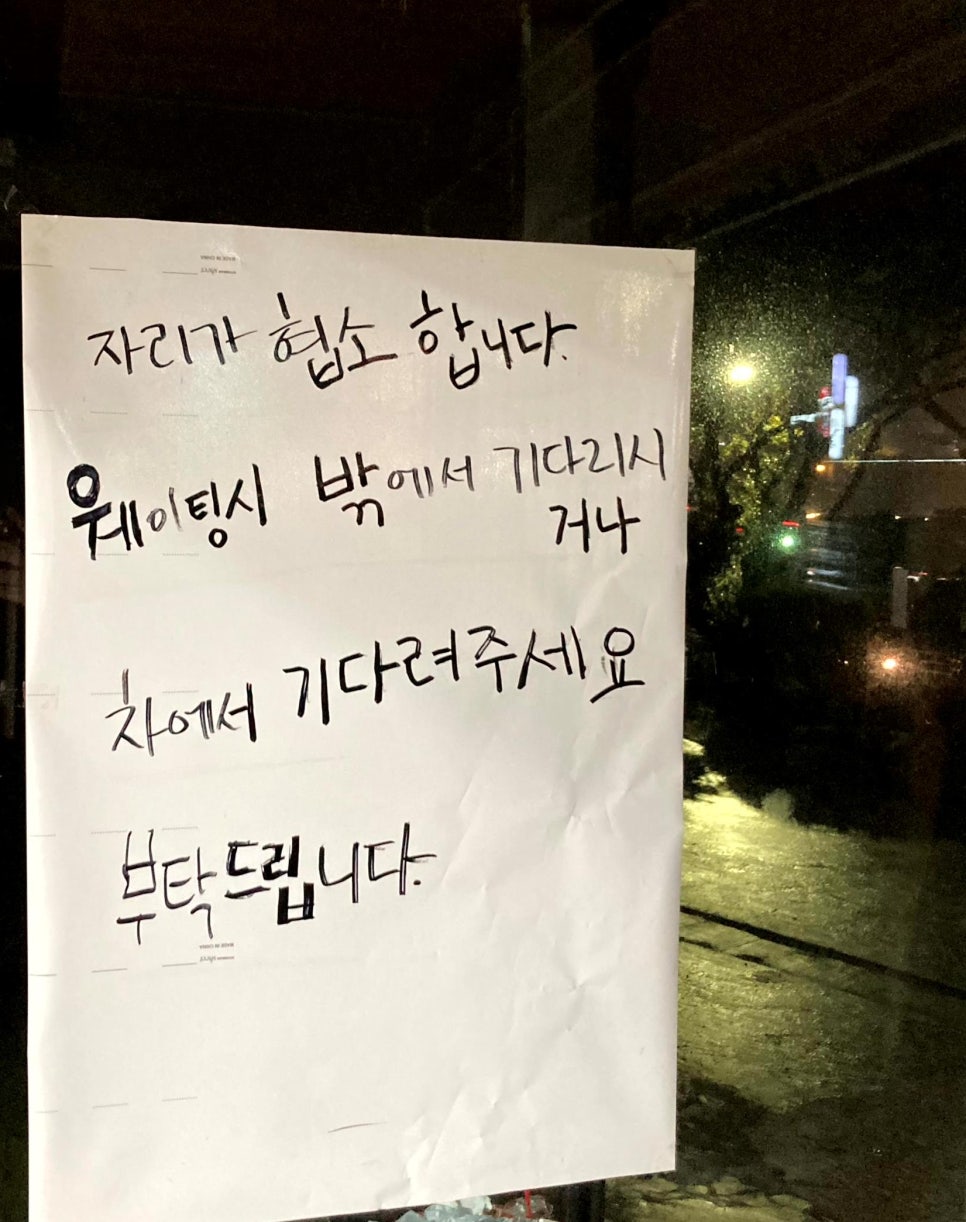 자리가 협소 합니다.
웨이팅시 밖에서 기다리시
거나
차에서 기다려주세요
부탁드립니다.